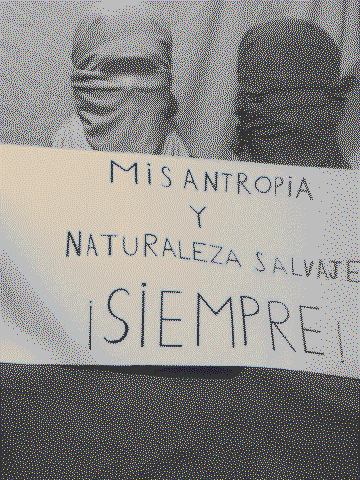 MiSANTROPiA
Y
NATURALEZA SALVAJE
¡SiEMPRE!